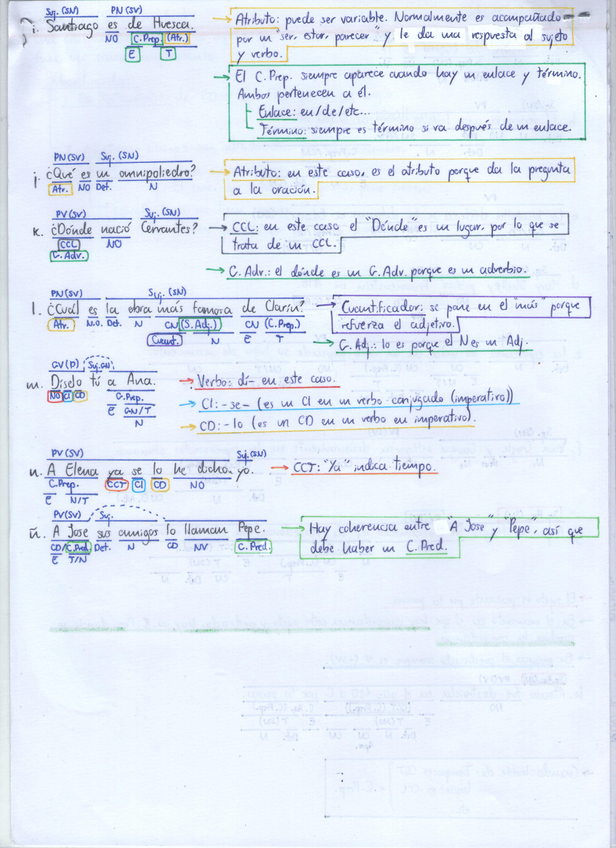 Suj. (SN) PN (SV)
i. Santiago es de Huesca.
NO C.Prep. (Atr.)
E T
→ Atributo: puede ser variable. Normalmente es acompañado
por un "ser, estar, parecer" y le da una respuesta al sujeto
y verbo.
→ El C. Prep. siempre aparece cuando hay un enlace y término.
Ambos pertenecen a él.
Enlace: en/de/etc...
Término: siempre es término si va después de un enlace.
PN (SV) Suj. (SN)
j. ¿Qué es un omnipoliedro?
Atr. NO Det. N
→ Atributo: en este caso, es el atributo porque da la pregunta
a la oración.
PV (SV) Suj. (SN)
k. ¿Dónde nació Cervantes?
CCL NO
G. Adv.
→ CCL: en este caso el "Dónde" es un lugar, por lo que se
trata de un CCL.
→ G. Adv.: el dónde es un G. Adv. porque es un adverbio.
PN (SV) Suj. (SN)
l. ¿Cuál es la obra más famosa de Clarín?
Atr. N.O. Det. N CN (S. Adj.) CN (C. Prep.)
Cuant. N E T
→ Cuantificador: se pone en el "más" porque
refuerza el adjetivo.
→ G. Adj.: lo es porque el N es un Adj.
GV (P) Suj. (SN)
m. Díselo tú a Ana.
NO CI CD G. Prep.
E GN/T
N
→ Verbo: dí- en este caso.
→ CI: -se- (es un CI en un verbo conjugado (imperativo))
→ CD: -lo (es un CD en un verbo en imperativo)
PV (SV) Suj. (SN)
n. A Elena ya se lo he dicho yo.
C. Prep. CCT CI CD NO
E N/T
→ CCT: "Ya" indica tiempo.
PV (SV) Suj.
ñ. A Jose sus amigos lo llaman Pepe.
CD/C. Pred. Det. N CD NV C. Pred.
E T/N
→ Hay coherencia entre "A Jose" y "Pepe", así que
debe haber un C. Pred.